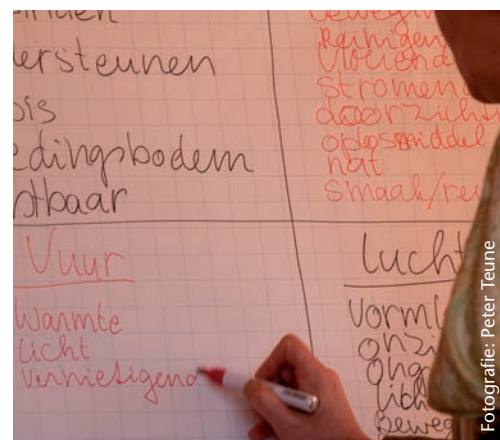 ersteunen
edingsbodem
tbaar
bewegin
Reinigen
Vloeiend
Stromen
doorzicht
oplosmiddel
nat
Smaak/re
Vuur
Warmte
licht
vernietigend
lucht
vorml
onzi
ong
lich
beweg
Fotografie: Peter Teune